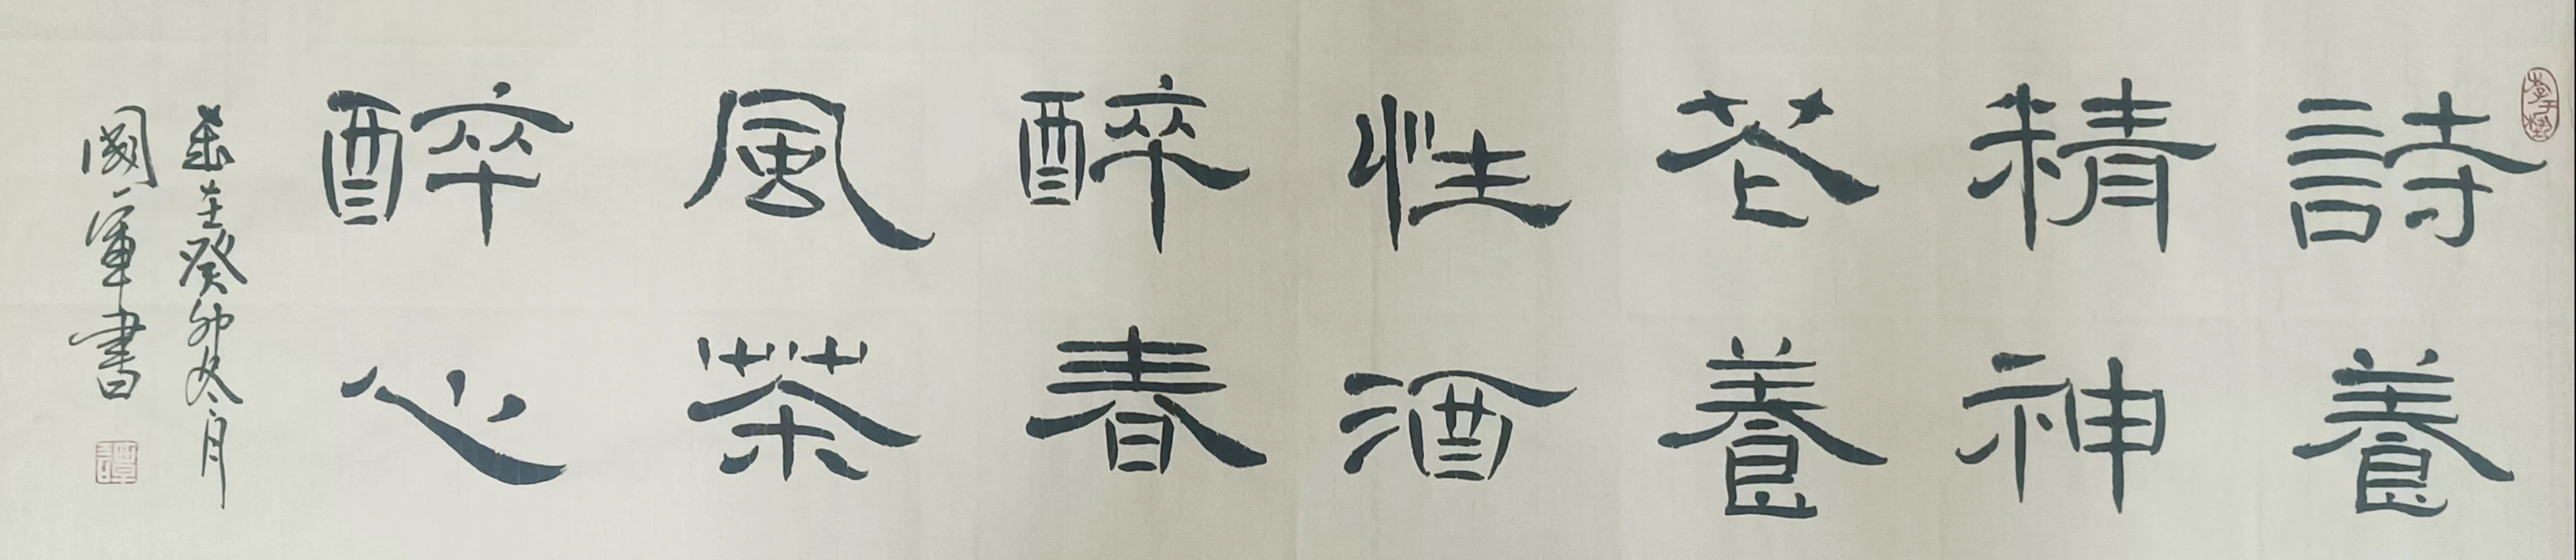 詩養
精神
花養
性酒
醉春
風茶
醉心
歲在癸卯冬月
國軍書
譚